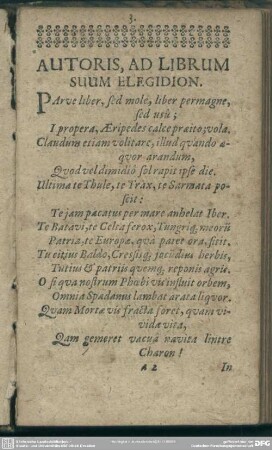 3.
AUTORIS, AD LIBRUM
SUUM ELEGIDION.
PArve liber, sed mole, liber permagne,
sed usu;
I propera, Æripedes calce praito; vola.
Claudum etiam volitare, illud quando æ-
qvor arandum,
Quod vel dimidiô sol rapit ipse die.
Ultima te Thule, te Trax, te Sarmata po-
scit:
Te jam pacatus per mare anhelat Iber.
Te Batavi, te Celta ferox, Tungriq; meorũ
Patria, te Europæ, qvà patet ora, sitit.
Tu citius Baldo, Cressiq; jocidiui herbis,
Tutius & patriis qvemq; reponis agris.
O si qva nostrum Phœbi vis insinit orbem,
Omnia Spadanus lambat arata liqvor.
Qvam Mortæ vis fracta foret, quam vi-
vida vita,
Qam gemeret vacuâ navita lintre
Charon!
A 2 In